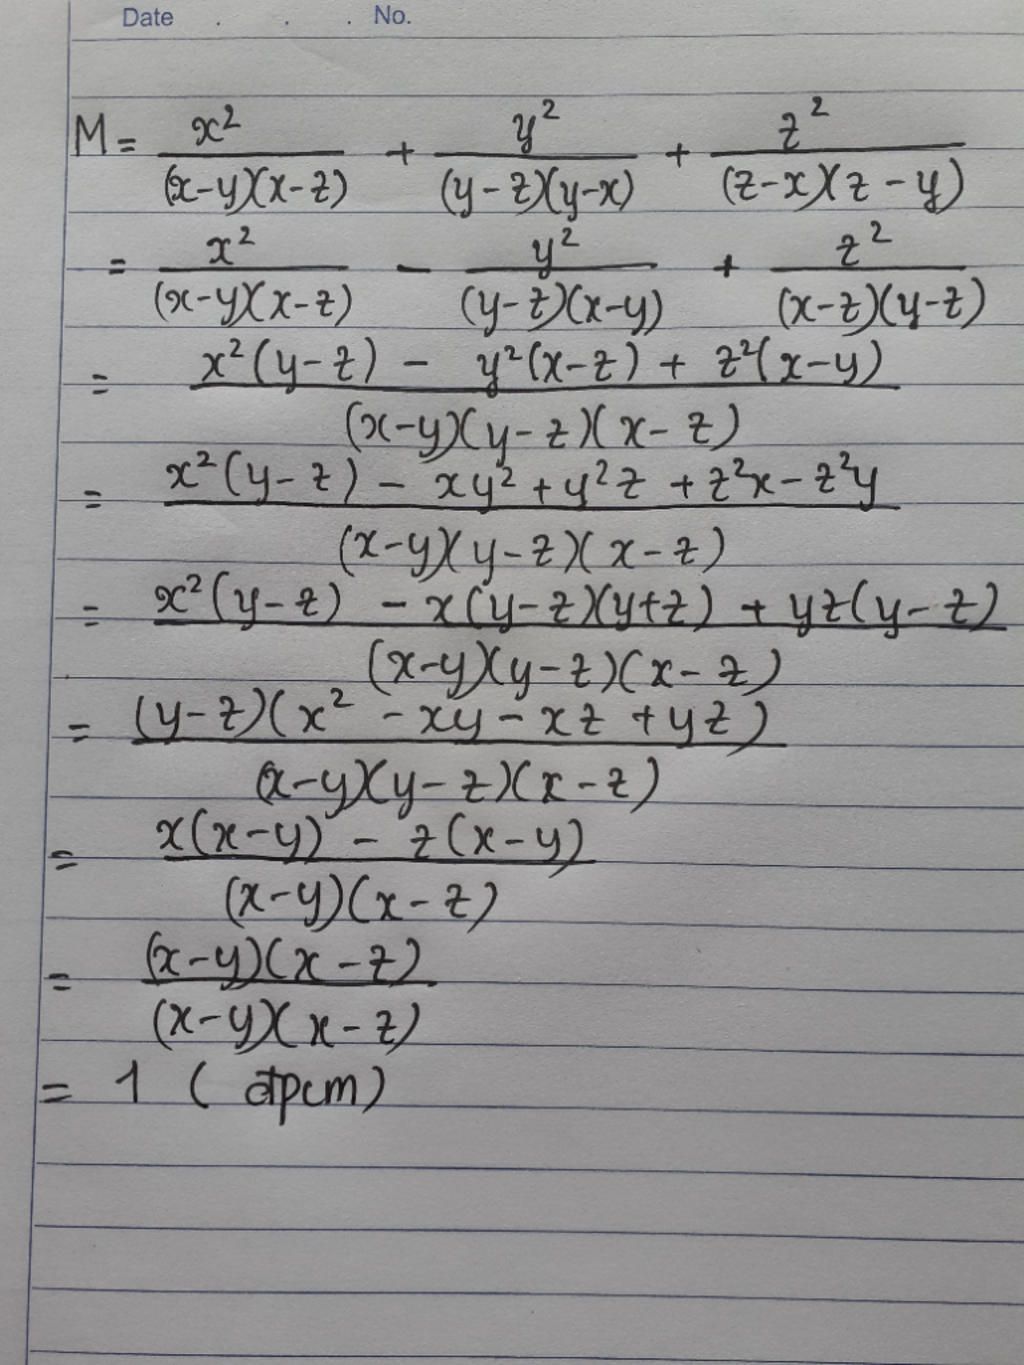 Date . . . No.
M = x²/((x-y)(x-z)) + y²/((y-z)(y-x)) + z²/((z-x)(z-y))
= x²/((x-y)(x-z)) - y²/((y-z)(x-y)) + z²/((x-z)(y-z))
= (x²(y-z) - y²(x-z) + z²(x-y))/((x-y)(y-z)(x-z))
= (x²(y-z) - xy² + y²z + z²x - z²y)/((x-y)(y-z)(x-z))
= (x²(y-z) - x(y-z)(y+z) + yz(y-z))/((x-y)(y-z)(x-z))
= ((y-z)(x² - xy - xz + yz))/((x-y)(y-z)(x-z))
= (x(x-y) - z(x-y))/((x-y)(x-z))
= ((x-y)(x-z))/((x-y)(x-z))
= 1 (đpcm)